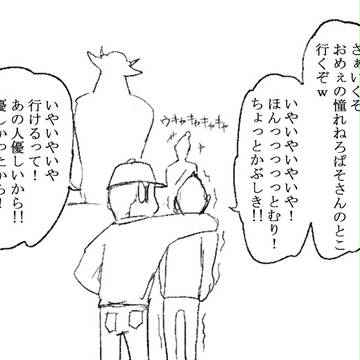 さあいくぞ
おめぇの憧れねろぱそさんのとこ
行くぞw
いやいやいやいや！
ほんっっっっっとむり！
ちょっとかぶしき!!
ウキャキャキャキャ
いやいやいやいや
行けるって！
あの人優しいから!!
優しかったから！